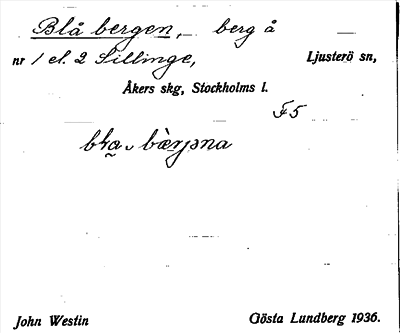 Blå bergen, berg å
nr 1 el. 2 Sillinge, Ljusterö sn,
Åkers skg, Stockholms l.
F5
John Westin Gösta Lundberg 1936.